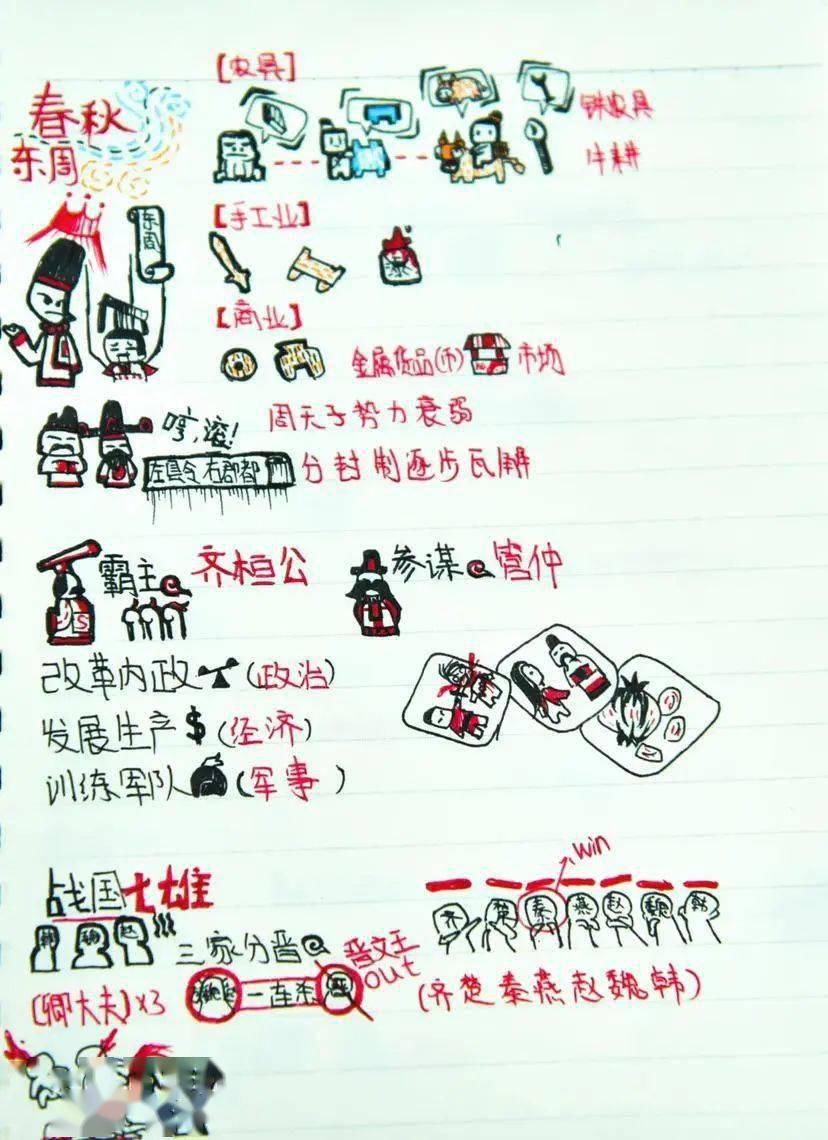 春秋
东周
【农具】
铁农具
牛耕
【手工业】
东周
【商业】
金属货品(币)
市场
哼,滚!
周天子势力衰弱
左县令右郡都
分封制逐步瓦解
霸主 齐桓公
参谋 管仲
改革内政 (政治)
发展生产 $ (经济)
训练军队 (军事)
战国七雄
win
齐 楚 秦 燕 赵 魏 韩
韩 魏 赵
三家分晋
晋文王
out
(卿大夫)x3
一连杀
(齐楚秦燕赵魏韩)